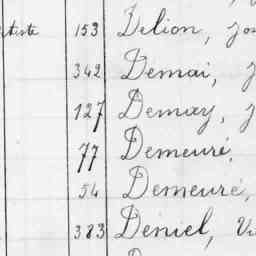 153 Delion,
342 Demai,
127 Demay,
77 Demeuré,
54 Demeuré,
383 Deniel,